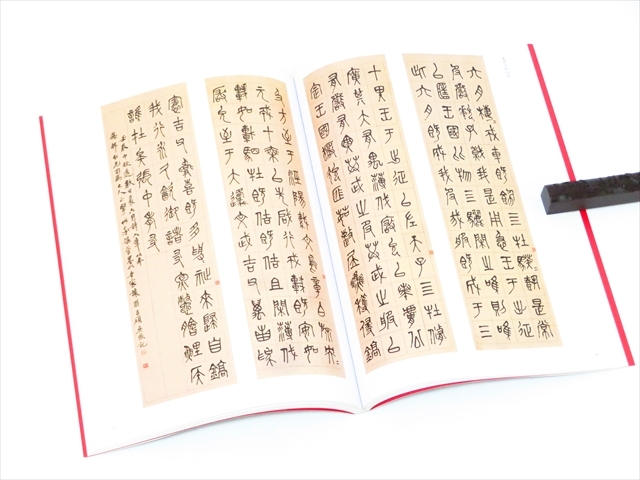 六月棲棲戎車既飭四牡騤騤載是常
服玁狁孔熾我是用急王于出征
以匡王國比物四驪閑之維則維
此六月既成我服我服既成于三
十里王于出征以佐天子四牡脩
廣其大有顒薄伐玁狁以奏膚公
有嚴有翼共武之服共武之服以
定王國玁狁匪茹整居焦穫侵鎬
及方至于涇陽織文鳥章白旆央央
元戎十乘以先啟行戎車既安如
輊如軒四牡既佶既佶且閑薄伐
玁狁至于大原文武吉甫萬邦為
憲吉甫燕喜既多受祉來歸自鎬
我行永久飲御諸友炰鼈膾鯉侯
誰在矣張仲孝友